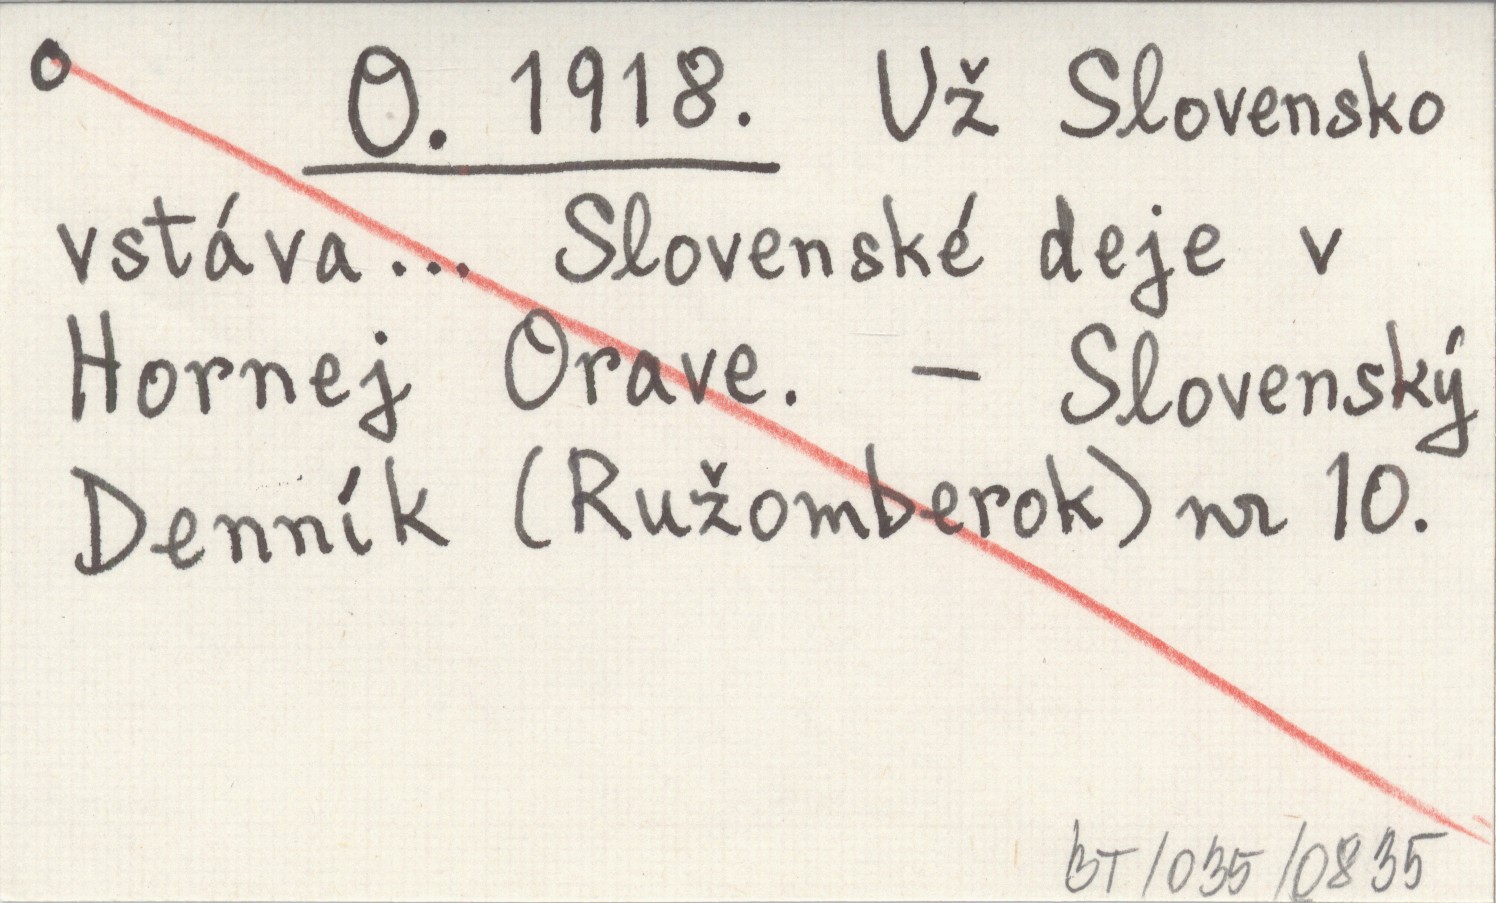 O. 1918. Už Slovensko
vstáva... Slovenské deje v
Hornej Orave. – Slovenský
Denník (Ružomberok) nr 10.
BT/035/0835